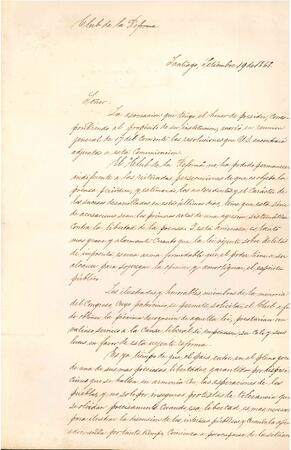 Club de la Reforma
Santiago, Setiembre 19 de 1868
Señor:
La asociacion que tengo el honor de presidir, corres-
pondiendo al propósito de su institucion, acordó en reunion
jeneral de 17 del corriente las resoluciones que US. encontrará
adjuntas a esta comunicacion.
El Club de la Reforma no ha podido permanecer
indiferente a las reiteradas persecuciones de que es objeto la
prensa periódica, y estimando los antecedentes y el carácter de
los sucesos desarrollados en estos últimos dias, teme que esta série
de acusaciones sean los primeros actos de una agresion sistemática
contra la libertad de la prensa. I esta amenaza es tanto
mas grave y alarmante cuanto que la lei vijente sobre delitos
de imprenta es una arma formidable que el poder tiene a su
alcance para sofocar la opinion y amortiguar el espíritu
público.
Los ilustrados y honorables miembros de la minoría
del Congreso cuyo patriotismo se permite solicitar el Club a fin
de obtener la próxima derogacion de aquella lei, prestarian un
valioso servicio a la causa liberal si empleasen su celo y sus
luces en favor de esta urjente reforma.
Es ya tiempo de que el pais entre en el pleno goce
de una de sus mas preciosas libertades, garantidas por disposi-
ciones que se hallen en armonía con las aspiraciones de los
pueblos, y no solo por inseguras protestas de tolerancia que
se olvidan precisamente cuando esa libertad es mas necesaria
para ilustrar la discusion de los intereses públicos y cuando la opinion
adormecida por tanto tiempo comienza a preocuparse de la